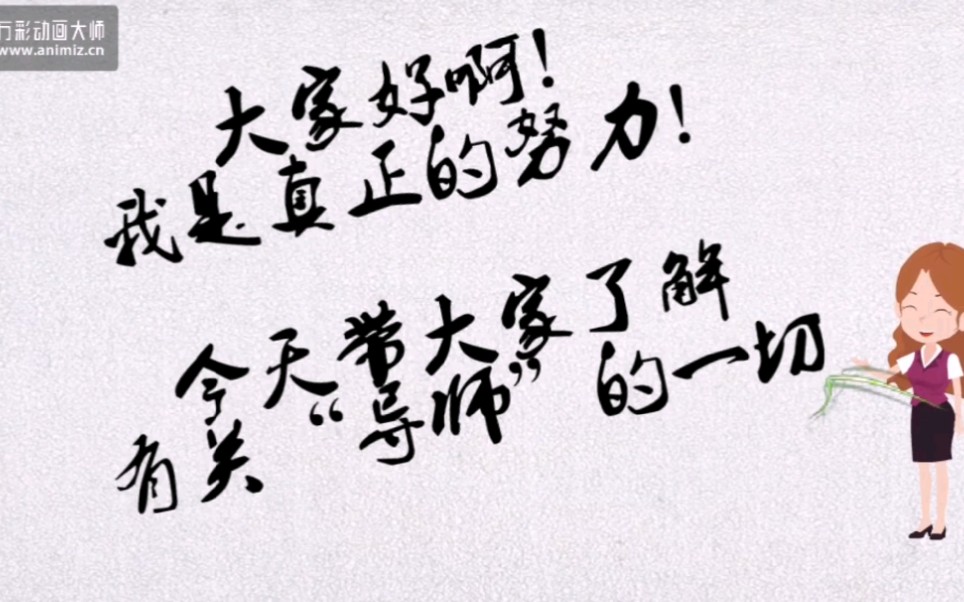 万彩动画大师
www.animiz.cn
大家好啊!
我是真正的努力!
今天带大家了解
有关“导师”的一切